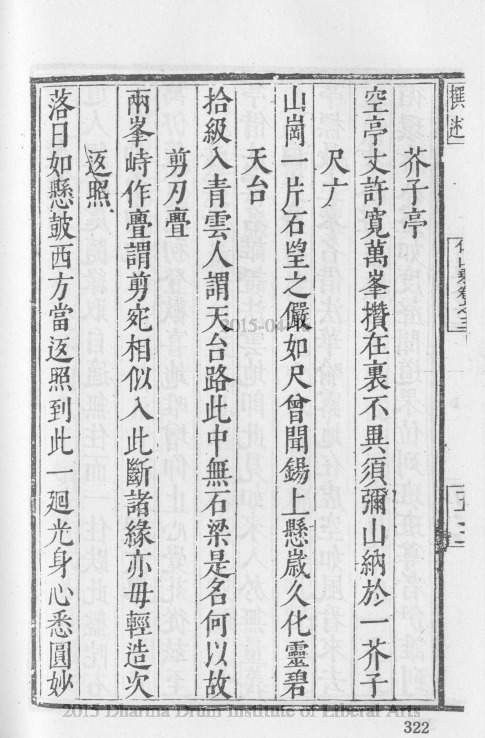 撰述
芥子亭
空亭丈許寬萬峯攢在裏不異須彌山納於一芥子
尺
山崗一片石望之儼如尺曾聞錫上懸歲久化靈碧
天台
拾級入青雲人謂天台路此中無石梁是名何以故
剪刀疊
兩峯峙作疊謂剪宛相似入此斷諸緣亦毋輕造次
返照
落日如懸皷西方當返照到此一廻光身心悉圓妙
2015-04
2015 Dharma Drum Institute of Liberal Arts
322